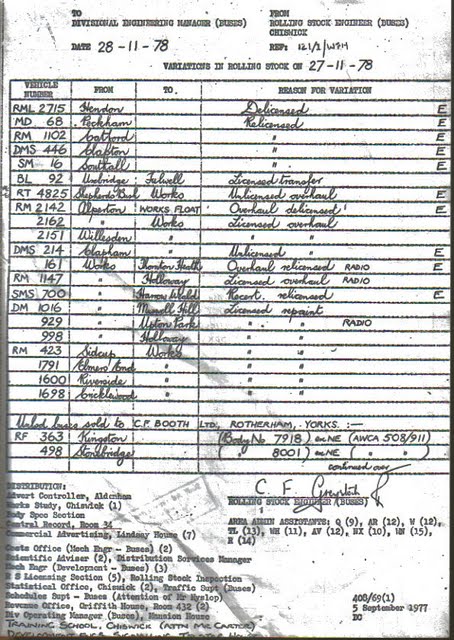 TO FROM
DIVISIONAL ENGINEERING MANAGER (BUSES) ROLLING STOCK ENGINEER (BUSES)
CHISWICK
DATE 28-11-78 REF: 121/2/WFH
VARIATIONS IN ROLLING STOCK ON 27-11-78
VEHICLE NUMBER FROM TO. REASON FOR VARIATION
RML 2715 Hendon Delicensed E
MD 68 Peckham Relicensed E
RM 1102 Catford " E
DMS 446 Clapton " E
SM 16 Southall " E
BL 92 Uxbridge Fulwell Licensed transfer
RT 4825 Shepherds Bush Works Unlicensed overhaul E
RM 2142 Alperton WORKS FLOAT Overhaul delicensed E
2162 " Works Licensed overhaul
2151 Willesden " " "
DMS 214 Clapham " Unlicensed " E
161 Works Thornton Heath Overhaul relicensed RADIO E
RM 1147 " Holloway Licensed overhaul RADIO
SMS 700 " Harrow Weald Recert. relicensed E
DM 1016 " Muswell Hill Licensed repaint
929 " Upton Park " " RADIO
998 " Holloway " "
RM 423 Sidcup Works " "
1791 Elmers End " " "
1600 Riverside " " "
1698 Cricklewood " " "
Unlcd buses sold to C.F. BOOTH LTD, ROTHERHAM, YORKS. :-
RF 363 Kingston (Body No 7918) ex NE (AWCA 508/911)
498 Stonebridge ( " 8001) ex NE ( " " )
continued over
DISTRIBUTION:
Advert Controller, Aldenham
Works Study, Chiswick (1)
Body Spec Section
Central Record, Room 34
Commercial Advertising, Lindsay House (7)
Costs Office (Mech Engr - Buses) (2)
Scientific Adviser (2), Distribution Services Manager
Mech Engr (Development - Buses) (3)
R S Licensing Section (5), Rolling Stock Inspection
Statistical Office, Chiswick (2), Traffic Supt (Buses)
Schedules Supt - Buses (Attention of Mr Hyslop)
Revenue Office, Griffith House, Room 432 (2)
Div Operating Manager (Buses), Mansion House
TRAINING SCHOOL, CHISWICK (ATTN MR CARTER)
ROLLING STOCK ENGINEER (BUSES)
AREA ADMIN ASSISTANTS: Q (9), AR (12), W (12),
TL (13), WH (11), AV (12), NX (10), UN (15),
R (14)
408/69(1)
5 September 1977
DO